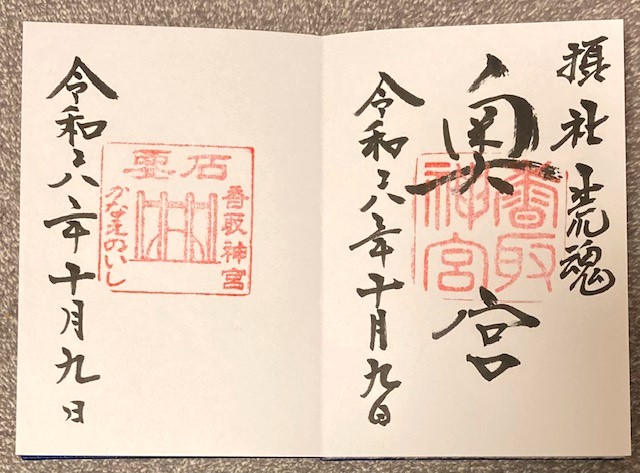 摂社 荒魂
奥宮
香取
神宮
令和六年十月九日
要石
香取神宮
かなめのいし
令和六年十月九日